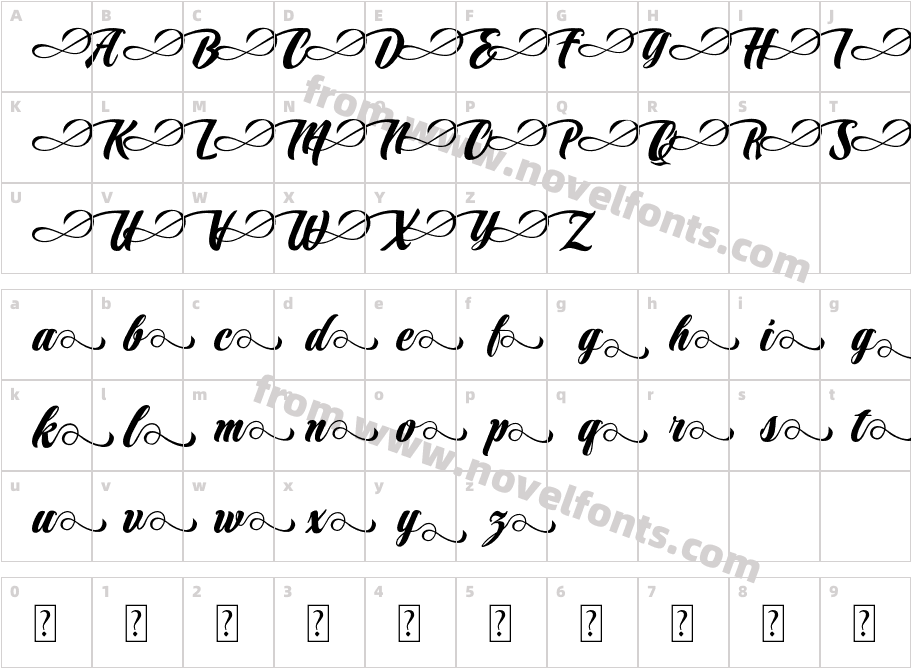 A B C D E F G H I J
A B C D E F G H I
K L M N O P Q R S T
K L M N O P Q R S
U V W X Y Z
U V W X Y Z
from www.novelfonts.com
a b c d e f g h i g
a b c d e f g h i g
k l m n o p q r s t
k l m n o p q r s t
u v w x y z
u v w x y z
from www.novelfonts.com
0 1 2 3 4 5 6 7 8 9
? ? ? ? ? ? ? ? ? ?